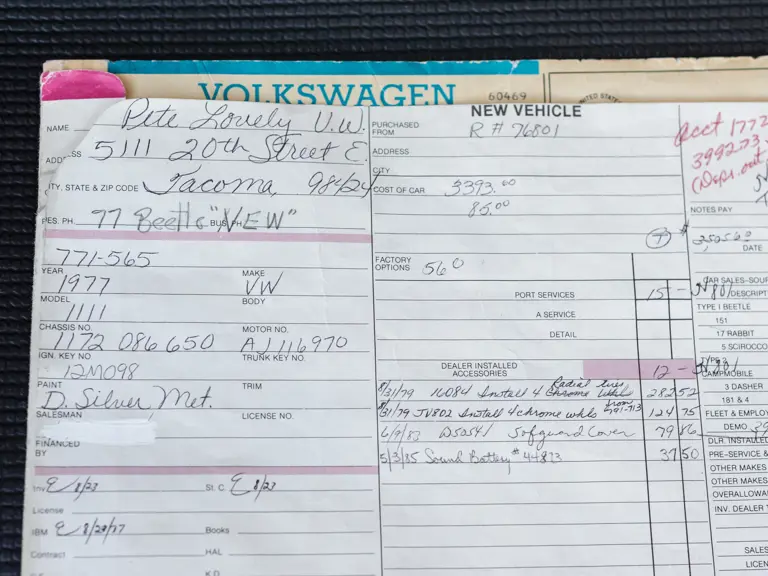 VOLKSWAGEN
60469
NEW VEHICLE
NAME Pete Lovely V.W.
5111 20th Street E.
CITY, STATE & ZIP CODE Tacoma, 98424
RES. PH. 77 Beetle "NEW" BUS. PH.
771-565
YEAR 1977 MAKE VW
MODEL 1111 BODY
CHASSIS NO. 1172 086 650 MOTOR NO. AJ116970
IGN. KEY NO. 12M098 TRUNK KEY NO.
PAINT D. Silver Met. TRIM
SALESMAN LICENSE NO.
FINANCED BY
Inv E 8/23 St. C E 8/23
License
IBM E 8/29/77 Books
Contract HAL
K.D.
PURCHASED FROM R # 76801
ADDRESS
CITY
COST OF CAR 3393.00
85.00
FACTORY OPTIONS 560
PORT SERVICES 15 -
A SERVICE
DETAIL
DEALER INSTALLED ACCESSORIES 12 -
8/31/79 16084 Install 4 Radial tires Chrome Whls 282 52
8/31/79 JV802 Install 4 chrome whls from 791-713 124 75
6/9/83 D5054 Sofguard Cover 79 86
5/3/85 Sound Battery # 44823 37 50
Acct 1772
399273
NOTES PAY
DATE
CAR SALES-SOUR
DESCRIPT
TYPE I BEETLE
151
17 RABBIT
5 SCIROCCO
TYPE 2
CAMPMOBILE
3 DASHER
181 & 4
FLEET & EMPLOY
DEMO
DLR. INSTALLED
PRE-SERVICE &
OTHER MAKES
OTHER MAKES
OVERALLOWA
INV. DEALER T
SALES
LICEN